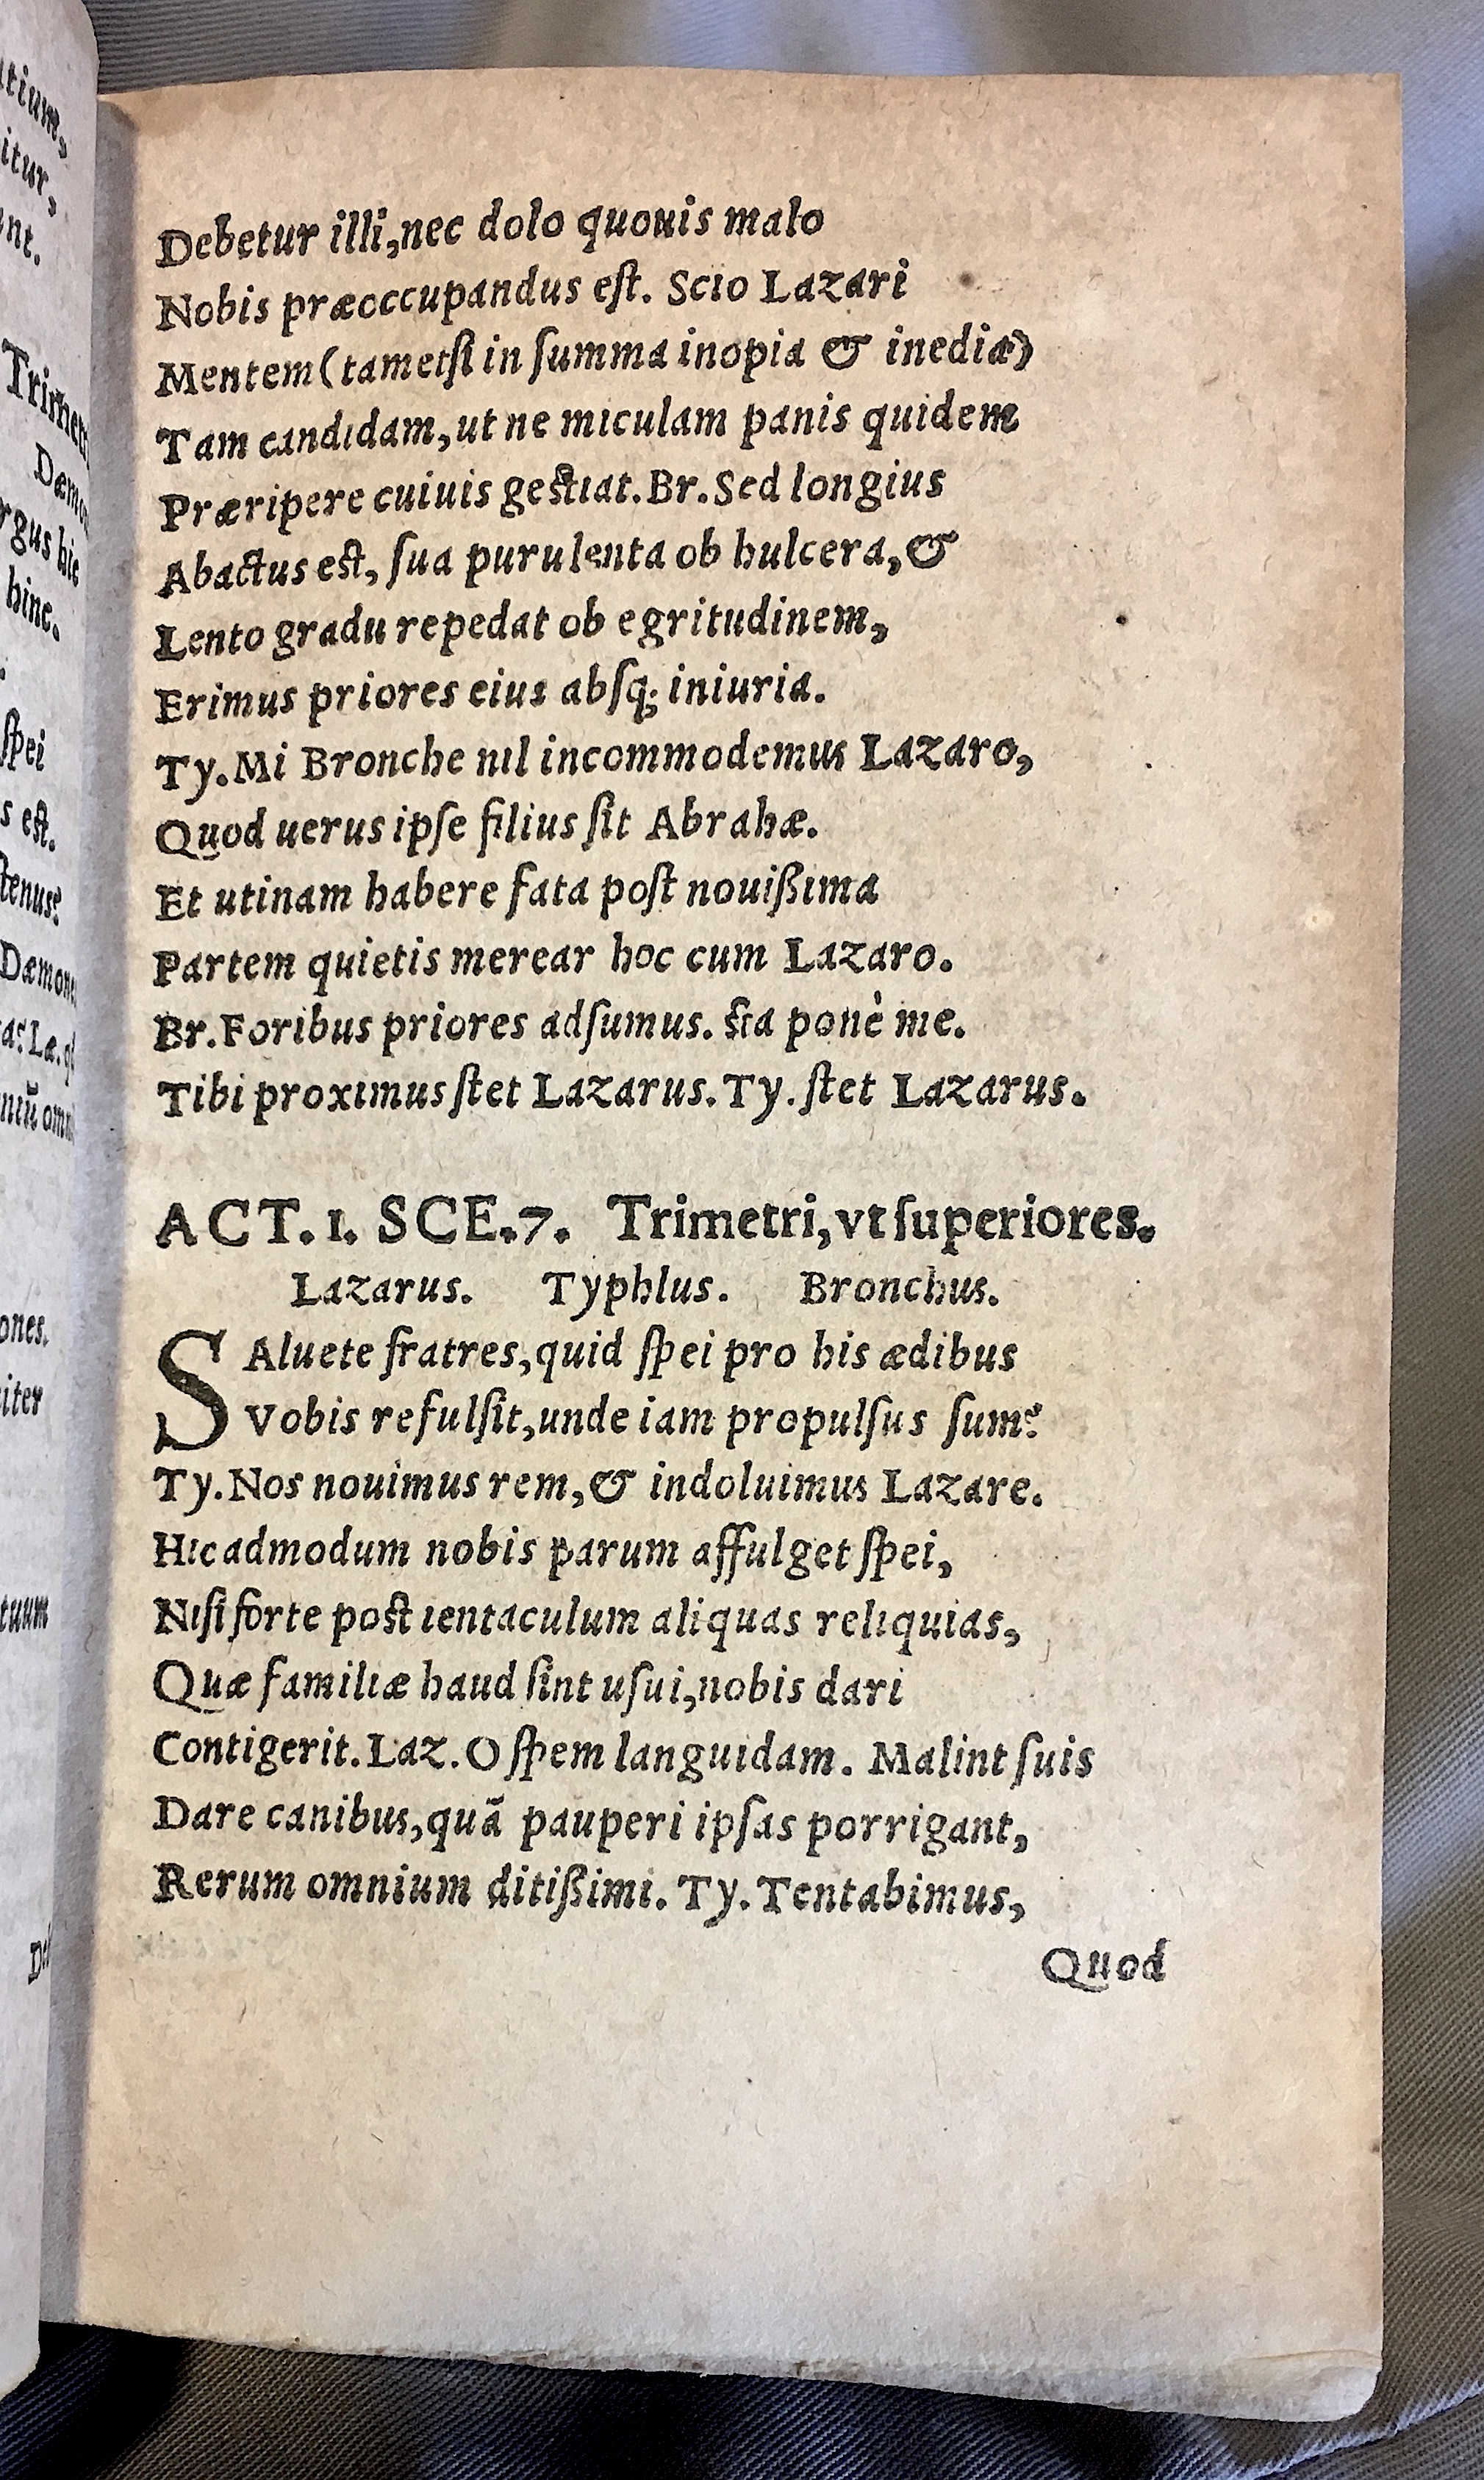 Debetur illi,nec dolo quouis malo
Nobis præoccupandus eſt. Scio Lazari
Mentem (tametſi in ſumma inopia & inedia)
Tam candidam,ut ne miculam panis quidem
Præripere cuiuis geſtiat. Br. Sed longius
Abactus eſt, ſua purulenta ob hulcera,&
Lento gradu repedat ob egritudinem,
Erimus priores eius abſq; iniuria.
Ty. Mi Bronche nil incommodemus Lazaro,
Quod uerus ipſe filius ſit Abrahæ.
Et utinam habere fata poſt nouißima
Partem quietis merear hoc cum Lazaro.
Br. Foribus priores adſumus. ſta ponè me.
Tibi proximus ſtet Lazarus. Ty. ſtet Lazarus.
ACT. 1. SCE. 7. Trimetri, vt ſuperiores.
Lazarus. Typhlus. Bronchus.
SAluete fratres,quid ſpei pro his ædibus
Vobis refulſit,unde iam propulſus ſum?
Ty. Nos nouimus rem,& indoluimus Lazare.
Hic admodum nobis parum affulget ſpei,
Niſi forte poſt ientaculum aliquas reliquias,
Quæ familiæ haud ſint uſui,nobis dari
Contigerit. Laz. O ſpem languidam. Malint ſuis
Dare canibus,quã pauperi ipſas porrigant,
Rerum omnium ditißimi. Ty. Tentabimus,
Quod